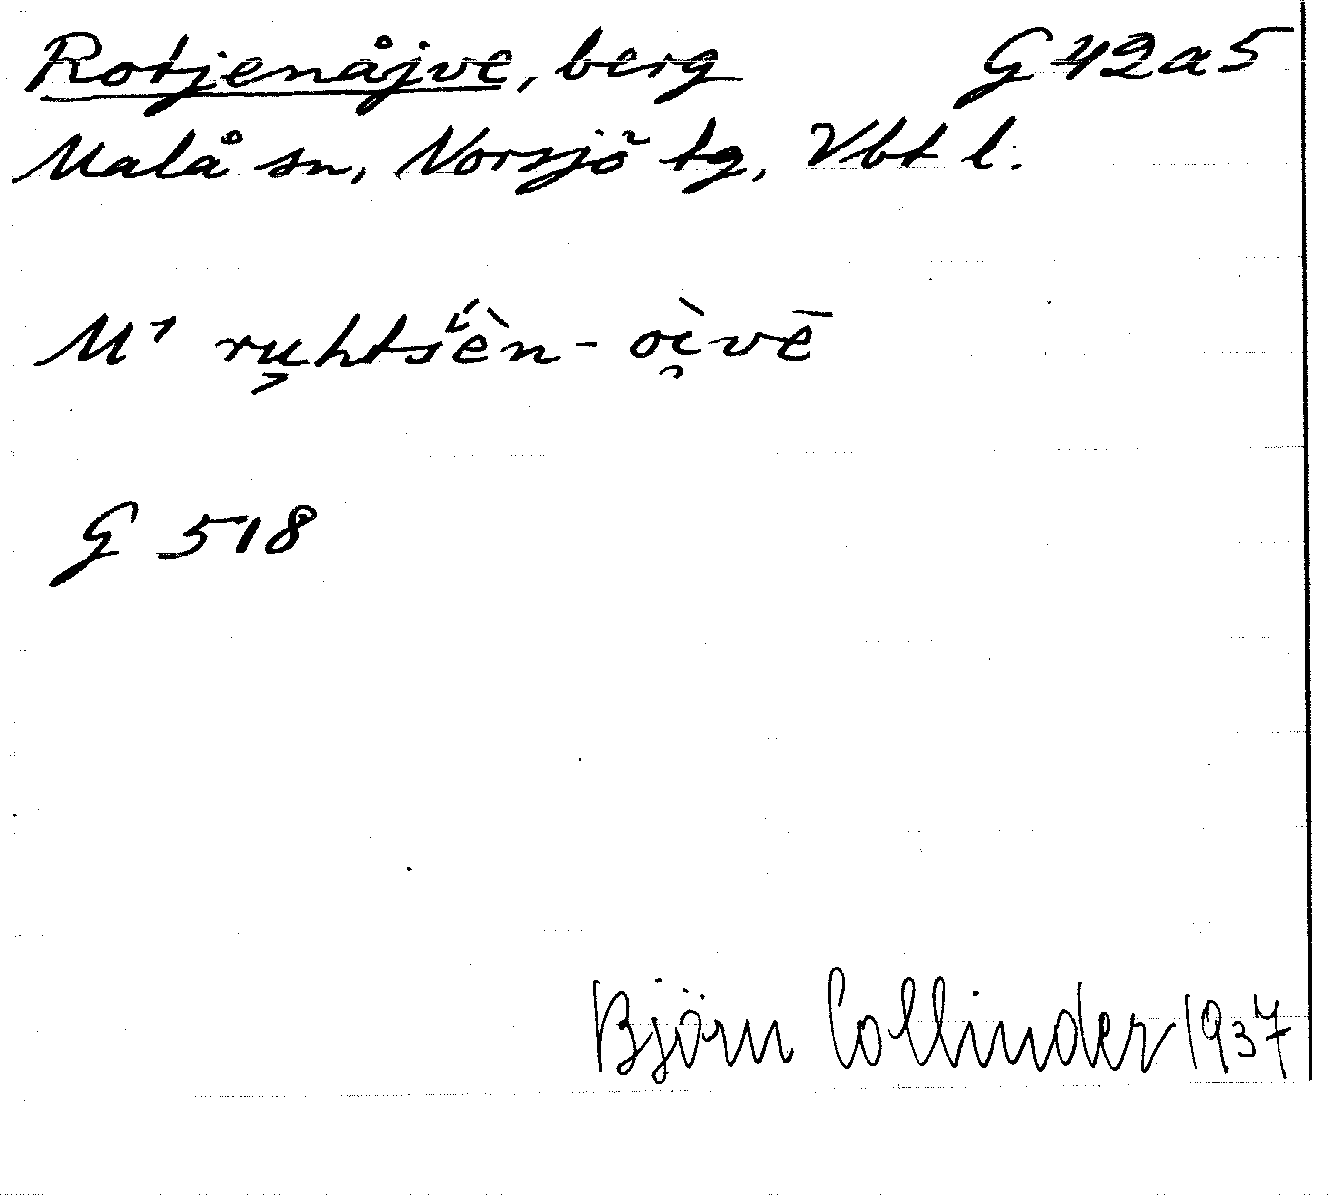 Rotjenåjve, berg G 42a5
Malå sn, Norsjö tg, Vbt l.
M¹ ru̯htsʹèn-oi̯vē
G 518
Björn Collinder 1937